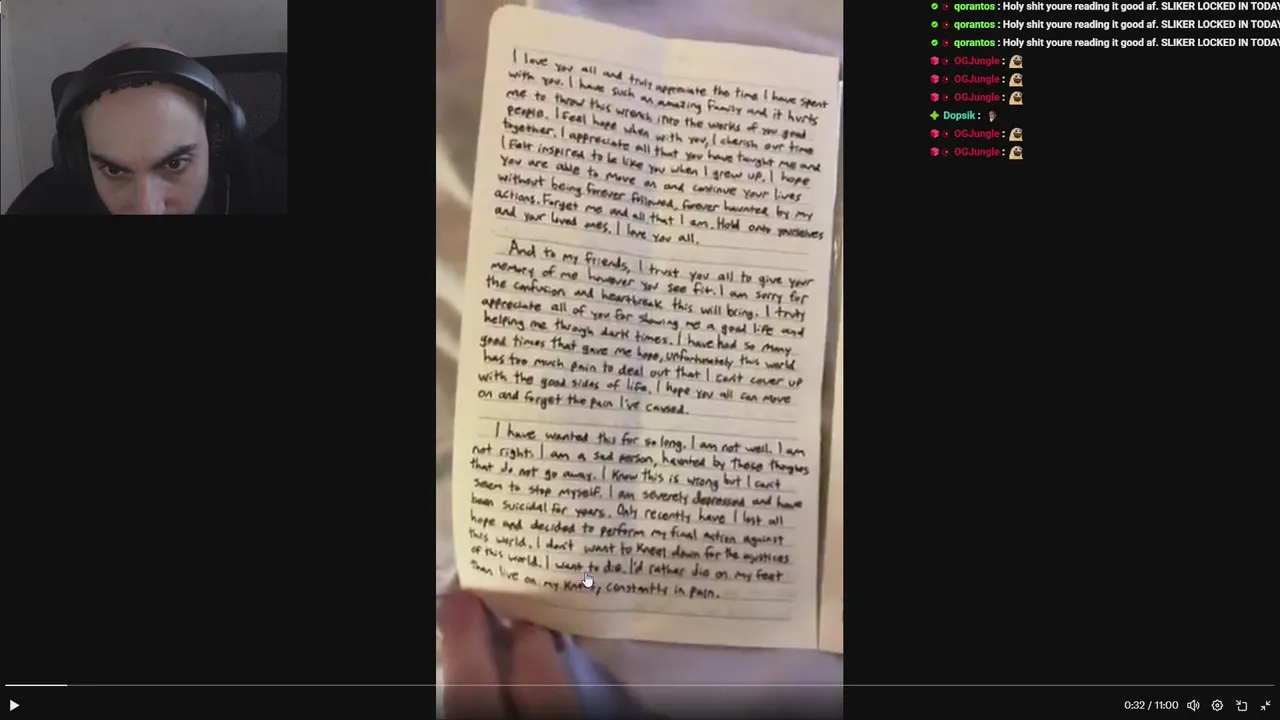 qorantos : Holy shit youre reading it good af. SLIKER LOCKED IN TODAY
qorantos : Holy shit youre reading it good af. SLIKER LOCKED IN TODAY
qorantos : Holy shit youre reading it good af. SLIKER LOCKED IN TODAY
OGJungle :
OGJungle :
OGJungle :
Dopsik :
OGJungle :
OGJungle :
I love you all and truly appreciate the time I have spent
with you. I have such an amazing family and it hurts
me to throw this wrench into the works of you good
people. I feel hope when with you, I cherish our time
together. I appreciate all that you have taught me and
I felt inspired to be like you when I grew up. I hope
you are able to move on and continue your lives
without being forever followed, forever haunted by my
actions. Forget me and all that I am. Hold onto yourselves
and your loved ones. I love you all.
And to my friends, I trust you all to give your
memory of me however you see fit. I am sorry for
the confusion and heartbreak this will bring. I truly
appreciate all of you for showing me a good life and
helping me through dark times. I have had so many
good times that gave me hope, unfortunately this world
has too much pain to deal out that I can't cover up
with the good sides of life. I hope you all can move
on and forget the pain I've caused.
I have wanted this for so long. I am not well. I am
not right. I am a sad person, haunted by these thoghts
that do not go away. I know this is wrong but I can't
seem to stop myself. I am severely depressed and have
been suicidal for years. Only recently have I lost all
hope and decided to perform my final action against
this world. I don't want to kneel down for the injustices
of this world. I want to die. I'd rather die on my feet
than live on my, constantly in pain.
0:32 / 11:00